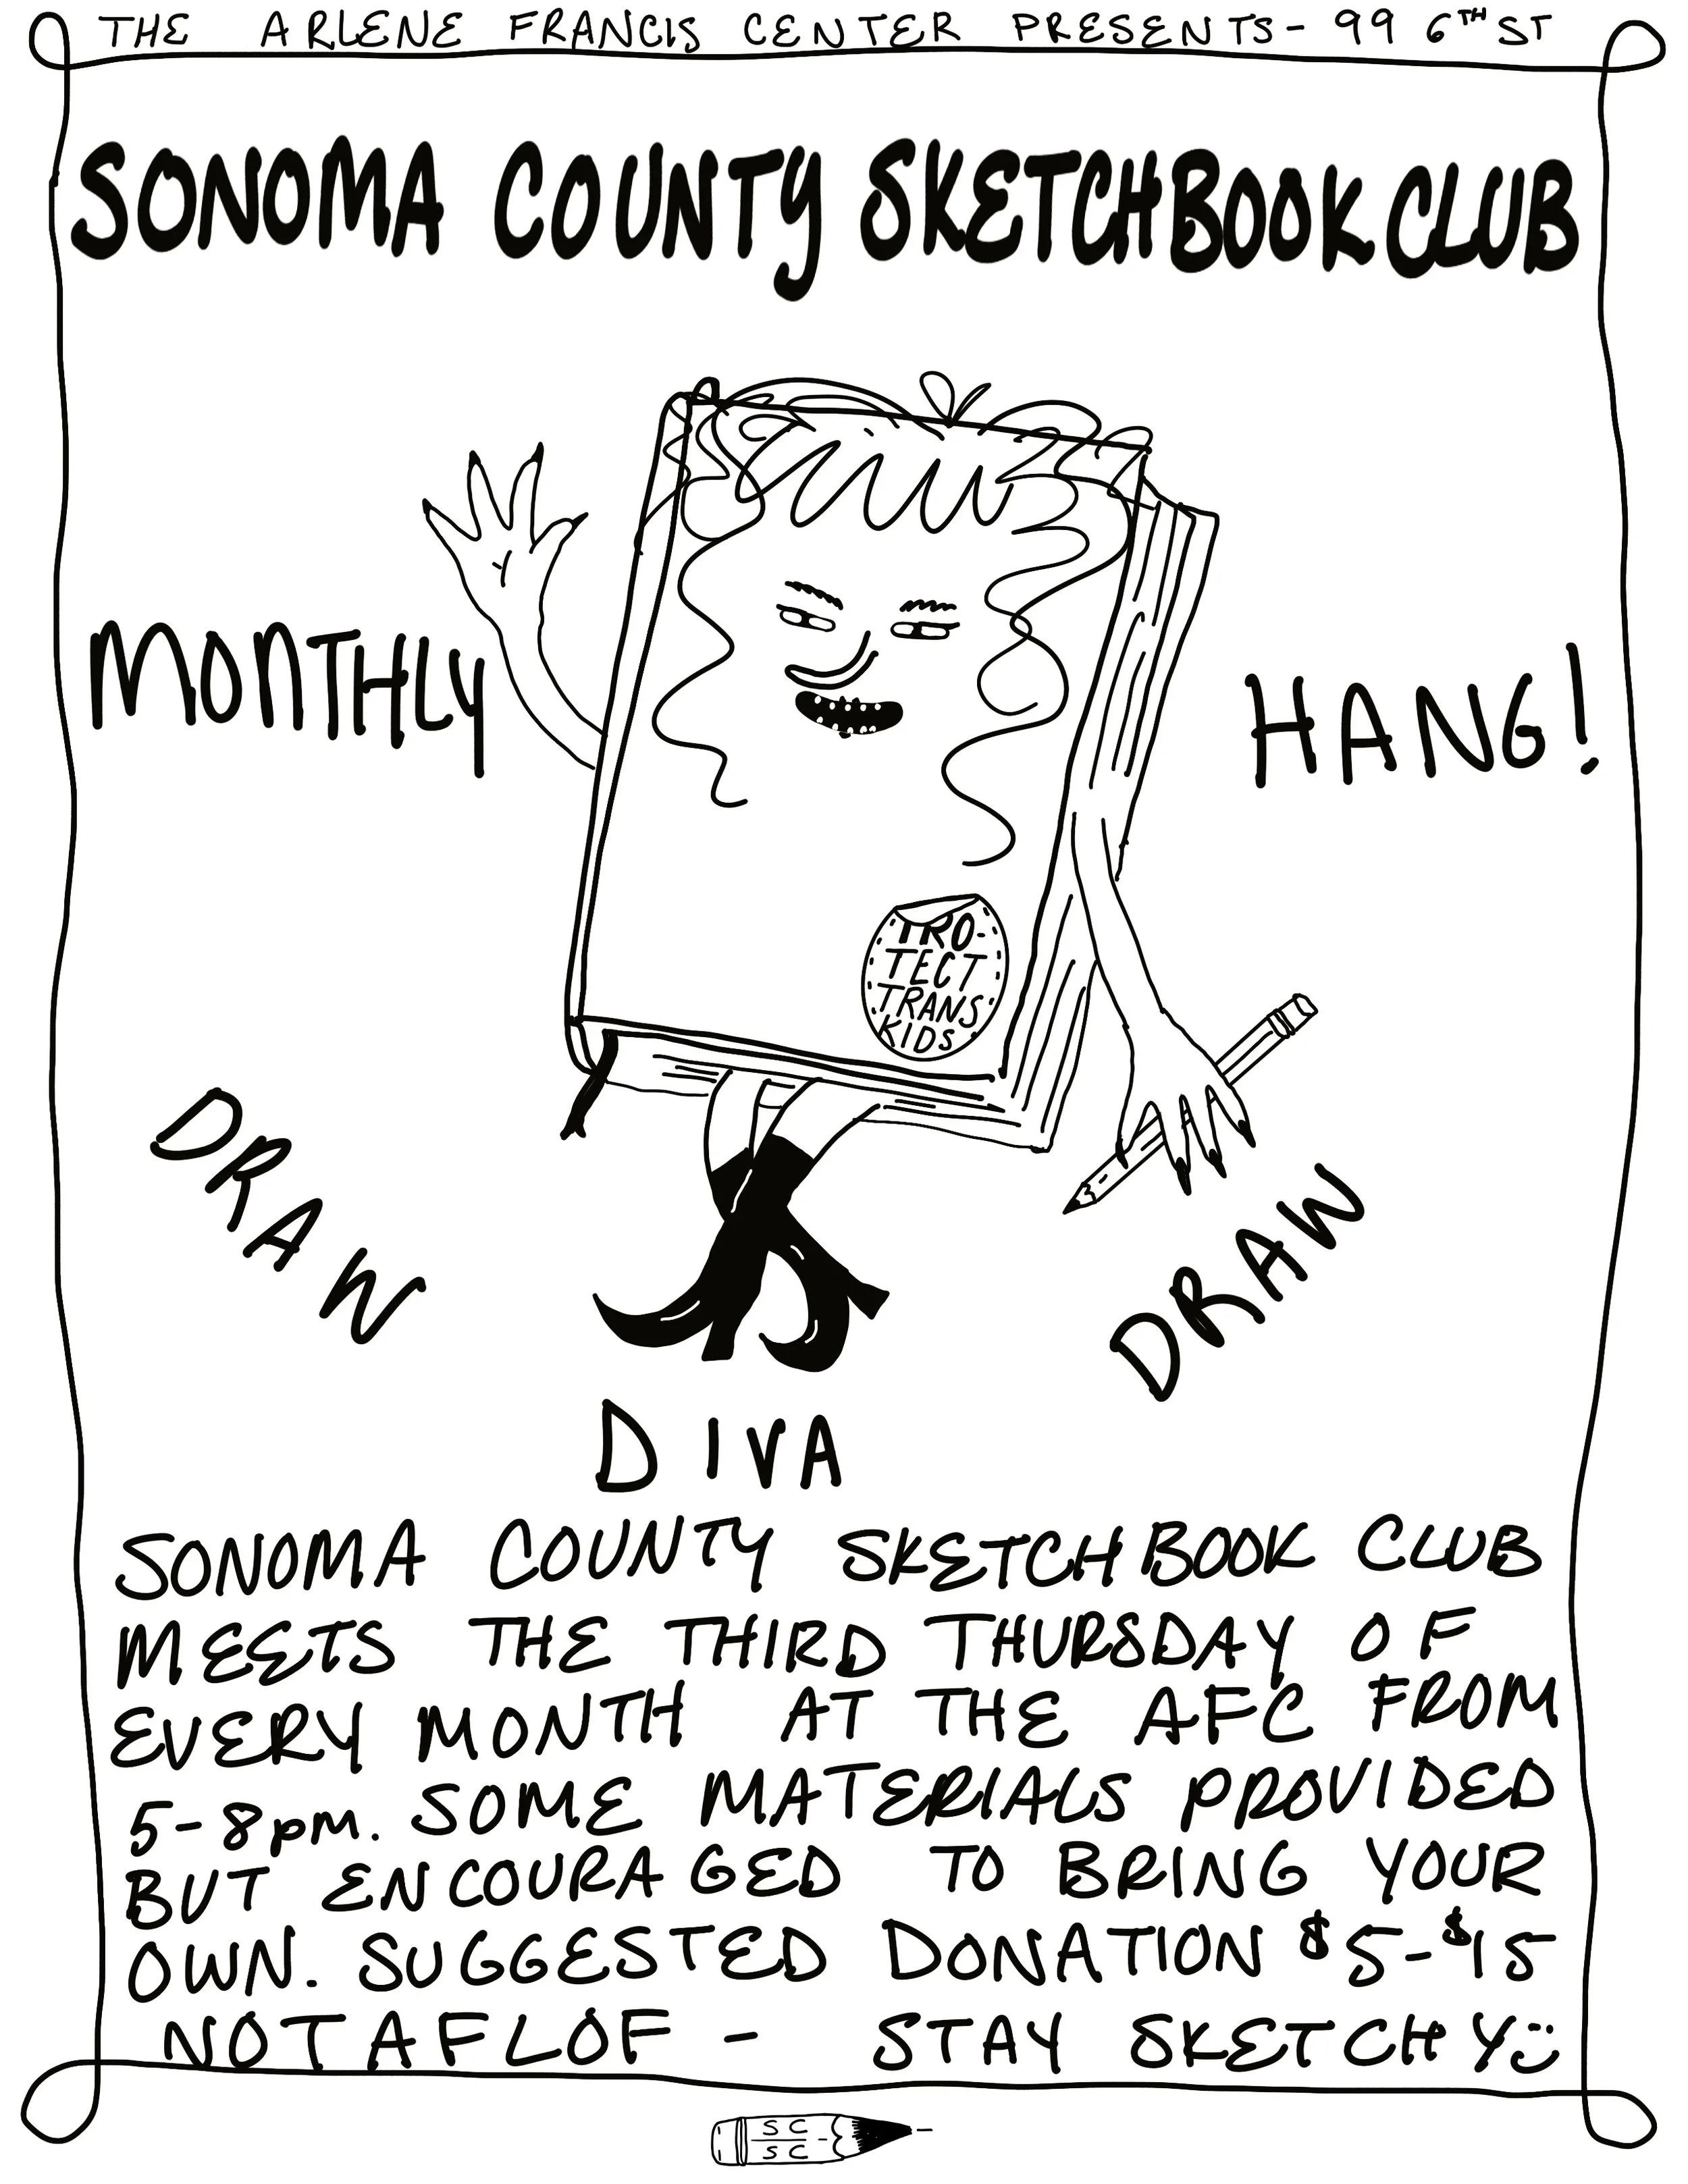 THE ARLENE FRANCIS CENTER PRESENTS- 99 6TH ST
SONOMA COUNTY SKETCHBOOK CLUB
MONTHLY
HANG!
PRO-
TECT
TRANS
KIDS
DRAW
DIVA
DRAW
SONOMA COUNTY SKETCHBOOK CLUB
MEETS THE THIRD THURSDAY OF
EVERY MONTH AT THE AFC FROM
5-8pm. SOME MATERIALS PROVIDED
BUT ENCOURAGED TO BRING YOUR
OWN. SUGGESTED DONATION $5-$15
NOTAFLOF - STAY SKETCHY
SC
SC